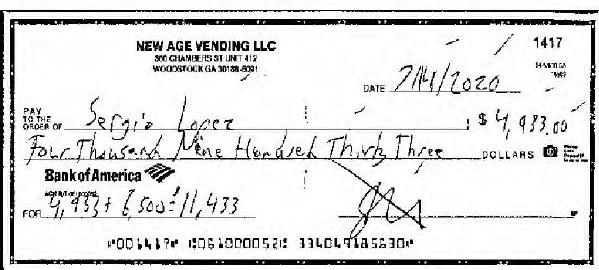 NEW AGE VENDING LLC
300 CHAMBERS ST UNIT 412
WOODSTOCK GA 30188-5091
1417
DATE 7/14/2020
PAY TO THE ORDER OF Sergio Lopez $ 4,933.00
Four Thousand Nine Hundred Thirty Three DOLLARS
Bank of America
FOR 4,933 + 6,500 = 11,433